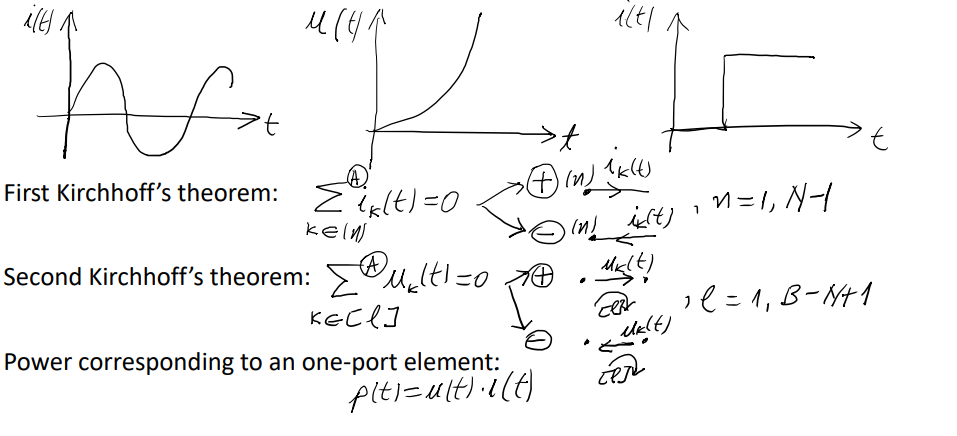 i(t) u(t) i(t)
t t t
First Kirchhoff's theorem: ∑(A) k∈(n) iₖ(t)=0 ⊕ (n) iₖ(t)
⊖ (n) iₖ(t) , n=1, N-1
Second Kirchhoff's theorem: ∑(A) k∈[l] uₖ(t)=0 ⊕ uₖ(t) [l]
⊖ uₖ(t) [l] , l = 1, B-N+1
Power corresponding to an one-port element:
p(t)=u(t)·i(t)